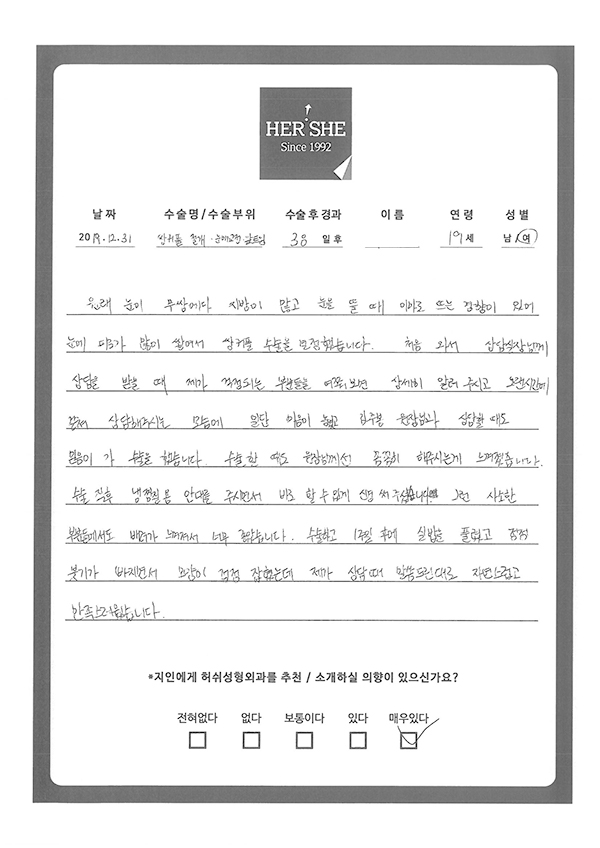 HER SHE
Since 1992
날 짜 수술명/수술부위 수술 후 경과 이 름 연 령 성 별
2019.12.31 쌍커풀 절개·눈매교정 앞트임 30 일 후 19 세 남/여
원래 눈이 무쌍에다 지방이 많고 눈을 뜰 때 이마로 뜨는 경향이 있어
눈에 피로가 많이 쌓여서 쌍커풀 수술을 결정했습니다. 처음 와서 상담실장님께
상담을 받을 때 제가 걱정되는 부분들을 여쭤보면 상세히 알려 주시고 오랜시간에
걸쳐 상담해주시는 모습에 일단 마음이 놓였고 김주봉 원장님과 상담할 때도
믿음이 가 수술을 했습니다. 수술한 때도 원장님께선 꼼꼼히 해주시는게 느껴졌습니다.
수술 직후 냉찜질용 안대를 주시면서 바로 할 수 있게 신경 써 주셨습니다 그런 사소한
부분들에서도 배려가 느껴져서 너무 좋았습니다. 수술하고 1주일 후에 실밥을 풀었고 점점
붓기가 빠지면서 모양이 점점 잡혔는데 제가 상담 때 말씀드린대로 자연스럽고
만족스러웠습니다.
*지인에게 허쉬성형외과를 추천 / 소개하실 의향이 있으신가요?
전혀없다 없다 보통이다 있다 매우있다